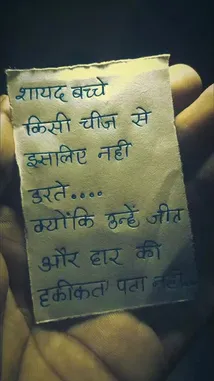 शायद बच्चे
किसी चीज से
इसालिए नही
डरते....
क्योंकि उन्हें जीत
और हार की
हकीकत पता नही...